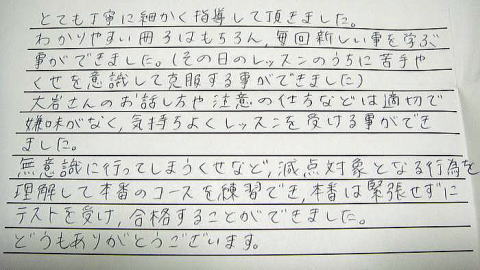 とても丁寧に細かく指導して頂きました。
わかりやすい所はもちろん、毎回新しい事を学ぶ
事ができました。(その日のレッスンのうちに苦手や
くせを意識して克服する事ができました)
大岩さんのお話し方や注意の仕方などは適切で
嫌味がなく、気持ちよくレッスンを受ける事ができ
ました。
無意識に行ってしまうくせなど、減点対象となる行為を
理解して本番のコースを練習でき、本番は緊張せずに
テストを受け、合格することができました。
どうもありがとうございます。